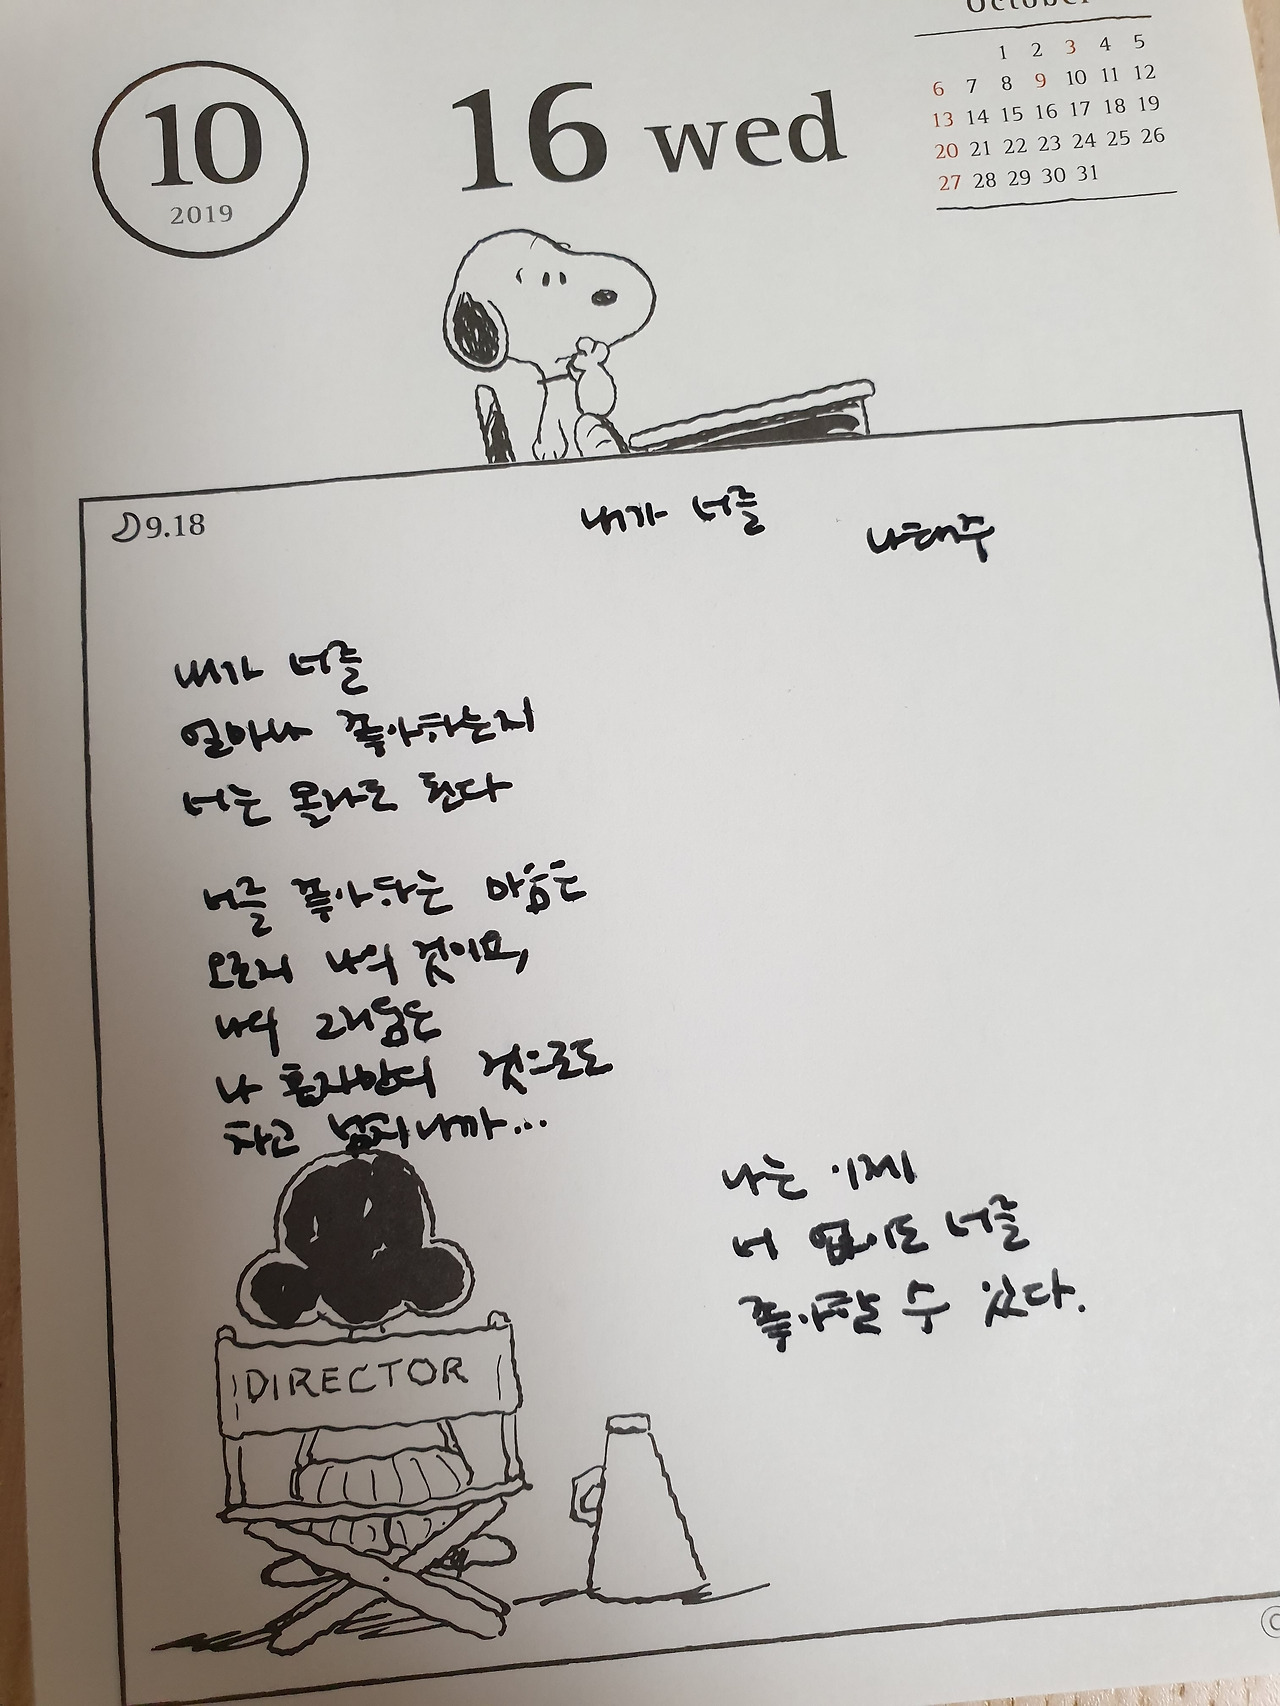 October
10
2019
16 wed
1 2 3 4 5
6 7 8 9 10 11 12
13 14 15 16 17 18 19
20 21 22 23 24 25 26
27 28 29 30 31
9.18
내가 너를
나태주
내가 너를
얼마나 좋아하는지
너는 몰라도 된다
너를 좋아하는 마음은
오로지 나의 것이요,
나의 그리움은
나 혼자만의 것으로도
차고 넘치니까...
나는 이제
너 없이도 너를
좋아할 수 있다.
DIRECTOR
©